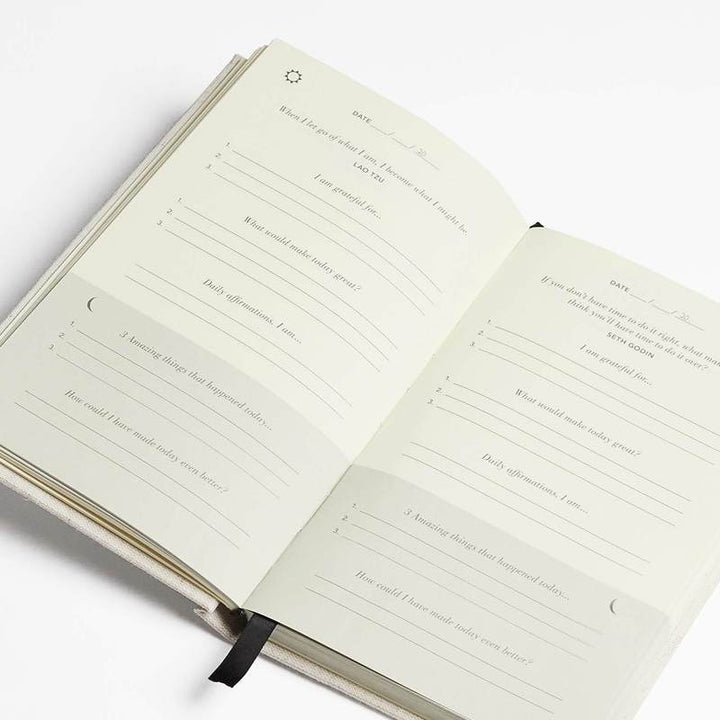 DATE / / 20
When I let go of what I am, I become what I might be.
LAO TZU
I am grateful for...
1.
2.
3.
What would make today great?
1.
2.
3.
Daily affirmations. I am...
3 Amazing things that happened today...
1.
2.
3.
How could I have made today even better?
DATE / / 20
If you don't have time to do it right, what mak
think you'll have time to do it over?
SETH GODIN
I am grateful for...
1.
2.
3.
What would make today great?
1.
2.
3.
Daily affirmations. I am...
3 Amazing things that happened today...
1.
2.
3.
How could I have made today even better?